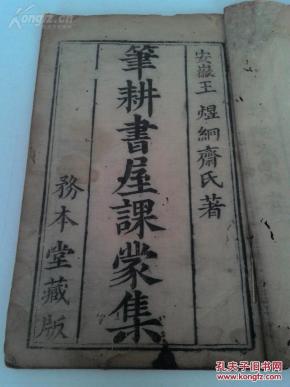 安嶽王煜絅齋氏著
筆耕書屋課蒙集
務本堂藏版
孔夫子旧书网